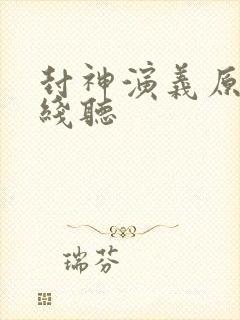 封神演義原
綫聽
瑞芬